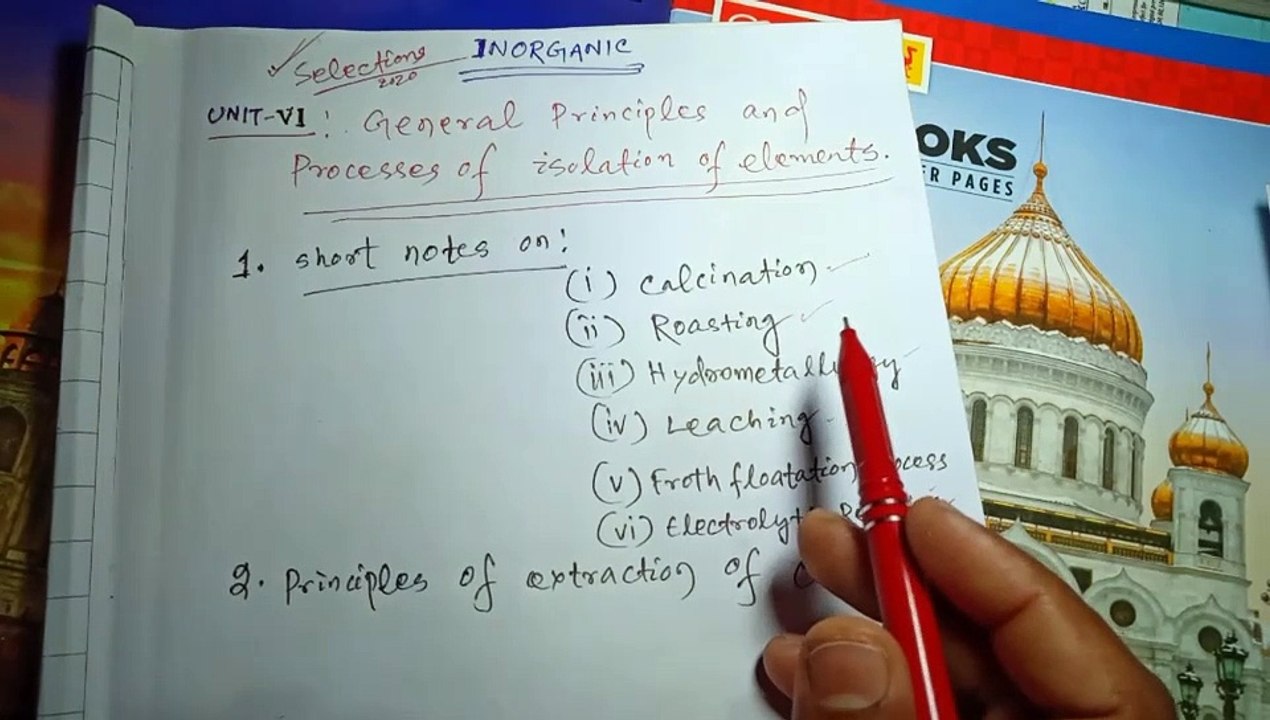 Selections INORGANIC
2020
UNIT-VI: General Principles and
Processes of isolation of elements.
1. short notes on:
(i) Calcination
(ii) Roasting
(iii) Hydrometallurgy
(iv) Leaching
(v) Froth floatation
(vi)
2. Principles of extraction of
OKS
R PAGES